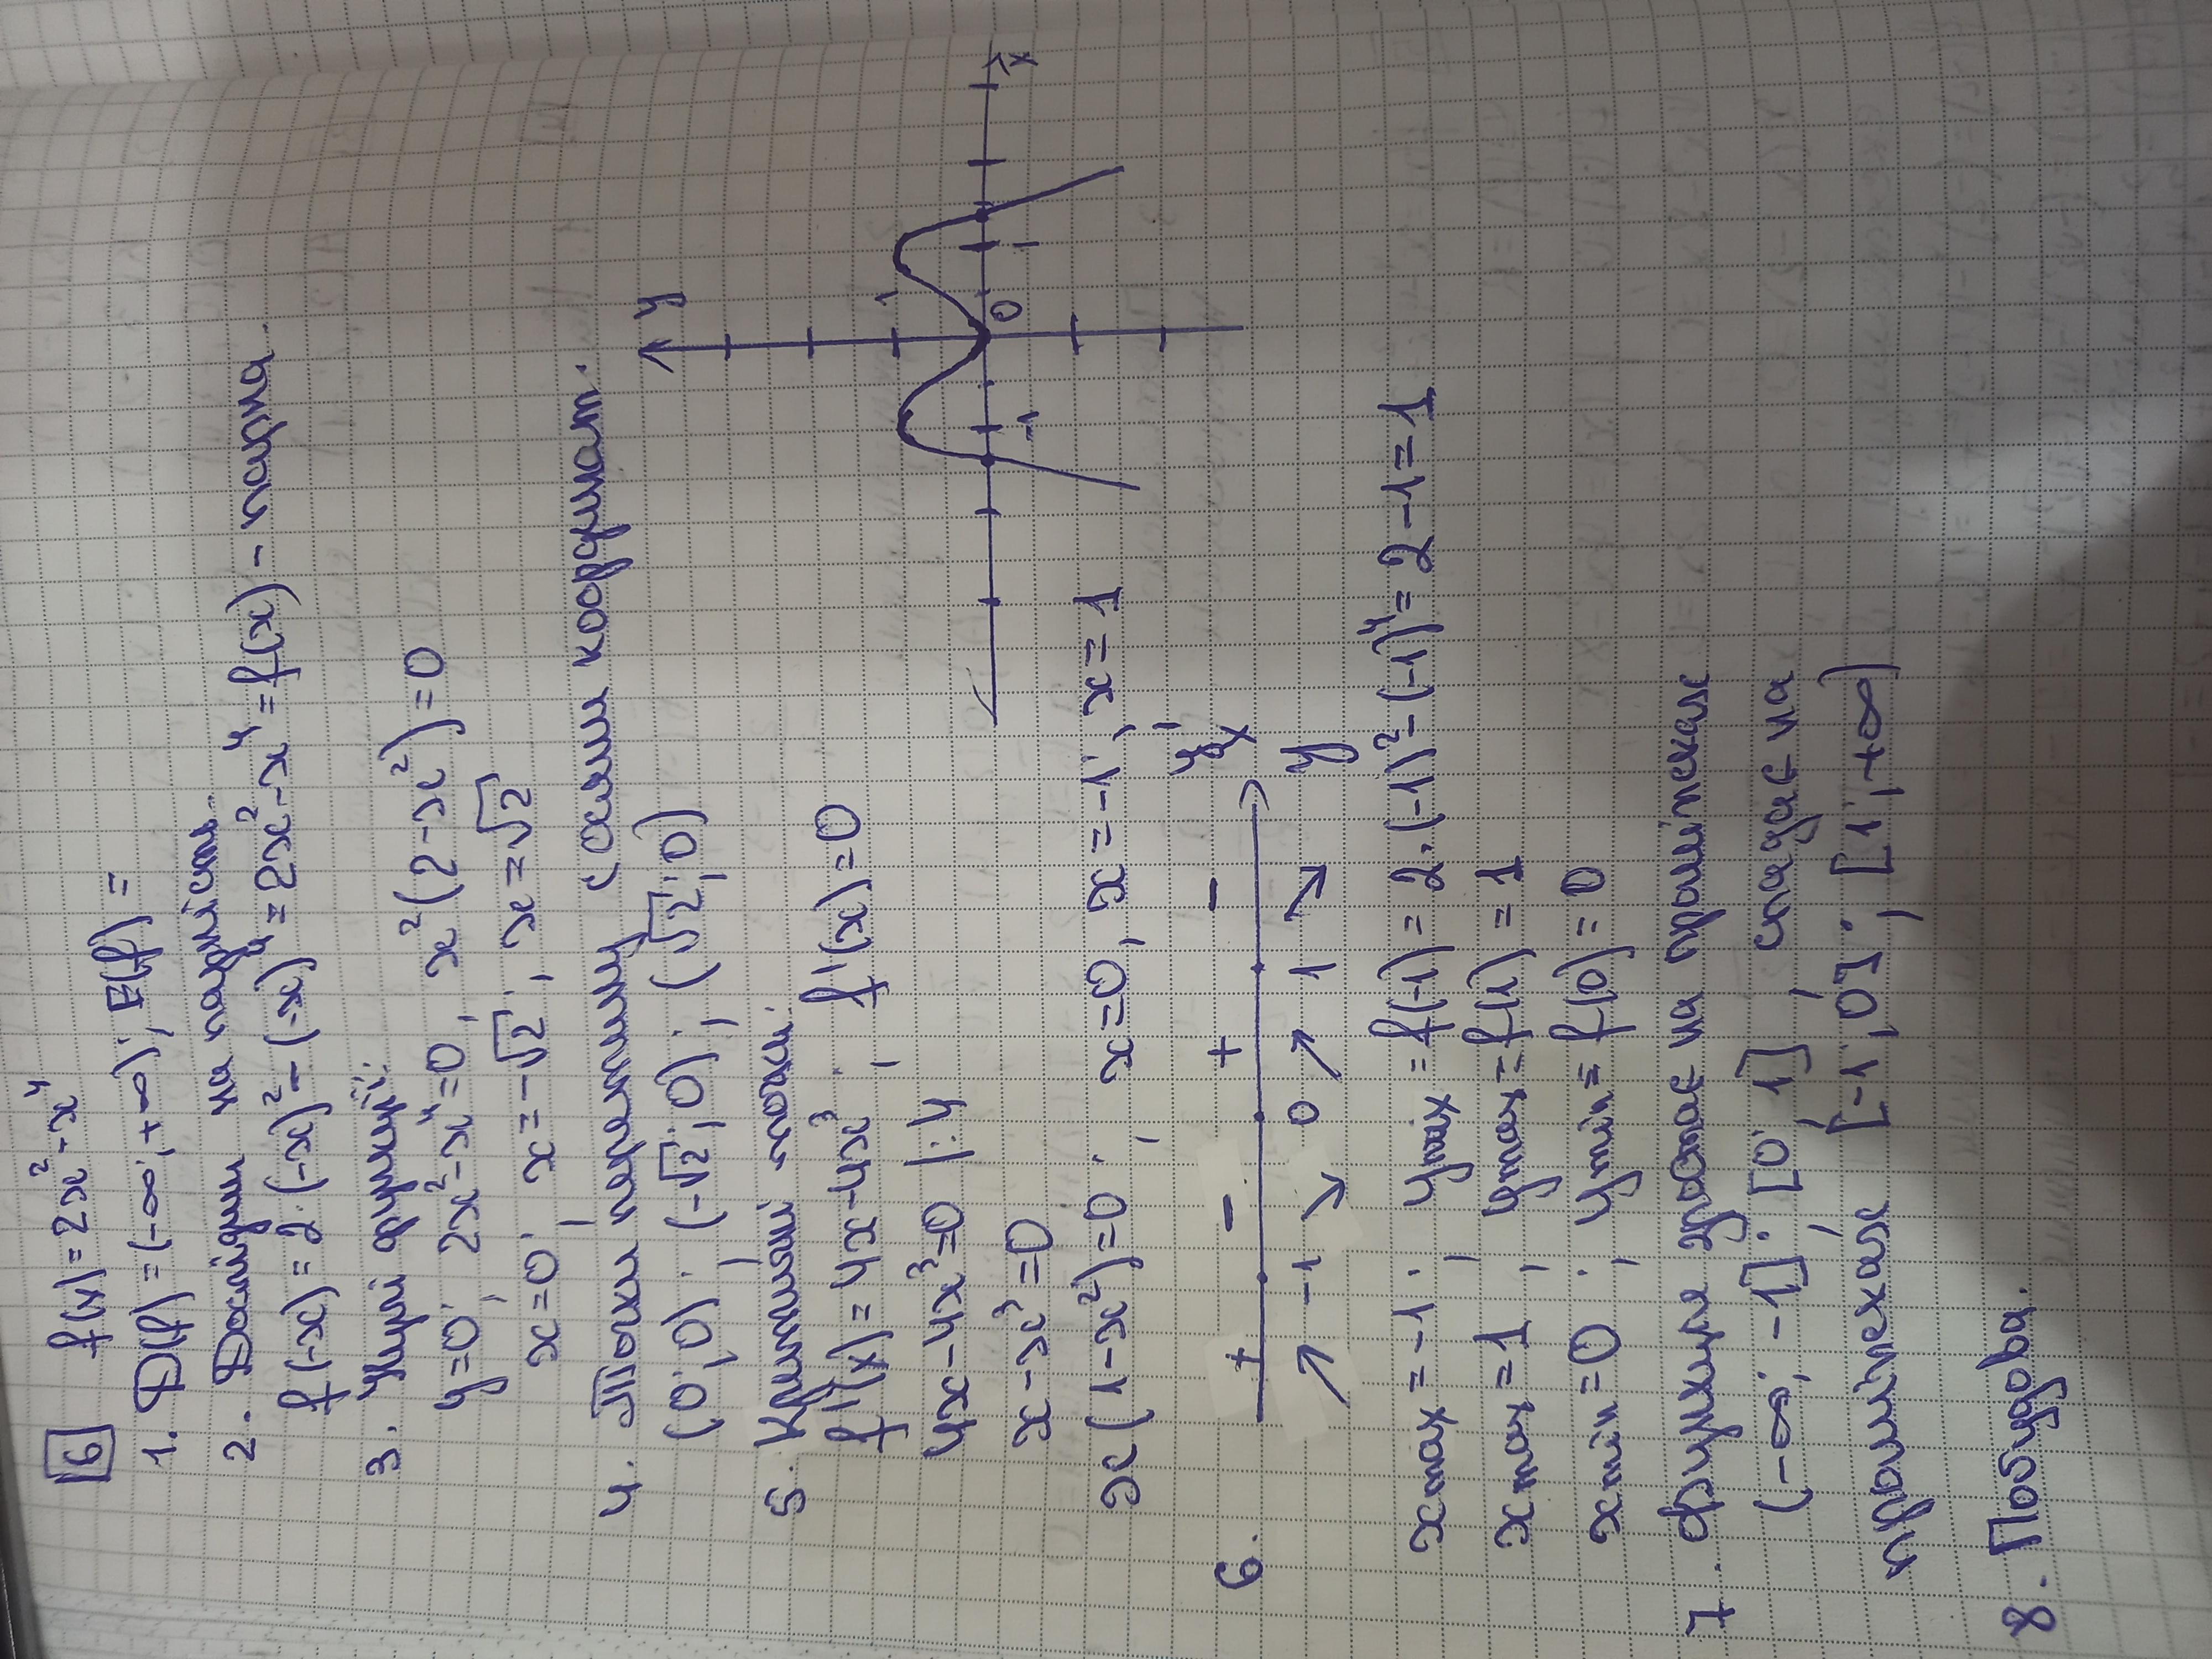 6 f(x) = 2x² - x⁴
1. D(f) = (-∞; +∞); E(f) =
2. Дослідим на парність.
f(-x) = 2·(-x)² - (-x)⁴ = 2x² - x⁴ = f(x) - парна.
3. Нулі функції:
y=0; 2x²-x⁴=0; x²(2-x²)=0
x=0; x=-√2; x=√2
4. Точки перетину з осями координат.
(0;0); (-√2;0); (√2;0)
5. Критичні точки:
f'(x) = 4x-4x³; f'(x)=0
4x-4x³=0 |:4
x-x³=0
x(1-x²)=0; x=0, x=-1; x=1
y
1
-1 0 1 x
6. + - + - y'
x
↗ -1 ↘ 0 ↗ 1 ↘ y
xmax=-1; ymax=f(-1)=2·(-1)²-(-1)⁴=2-1=1
xmax=1; ymax=f(1)=1
xmin=0; ymin=f(0)=0
7. Функція зростає на проміжках
(-∞; -1]; [0; 1], спадає на
проміжках [-1; 0]; [1; +∞)
8. Побудова.